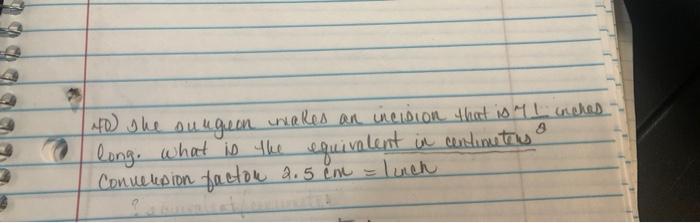 40) The surgeon makes an incision that is 7 1/8 inches
long. what is the equivalent in centimeters
Conversion factor 2.5 cm = 1 inch